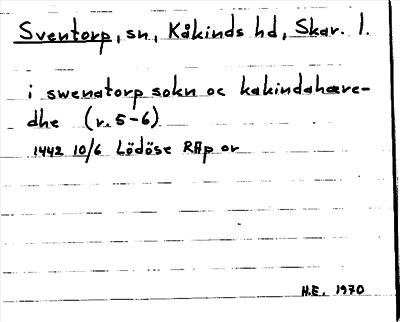 Sventorp, sn, Kåkinds hd, Skar. l.
i swenatorp sokn oc kakindahære-
dhe (r. 5-6)
1442 10/6 Lödöse RAp or
H.E. 1970